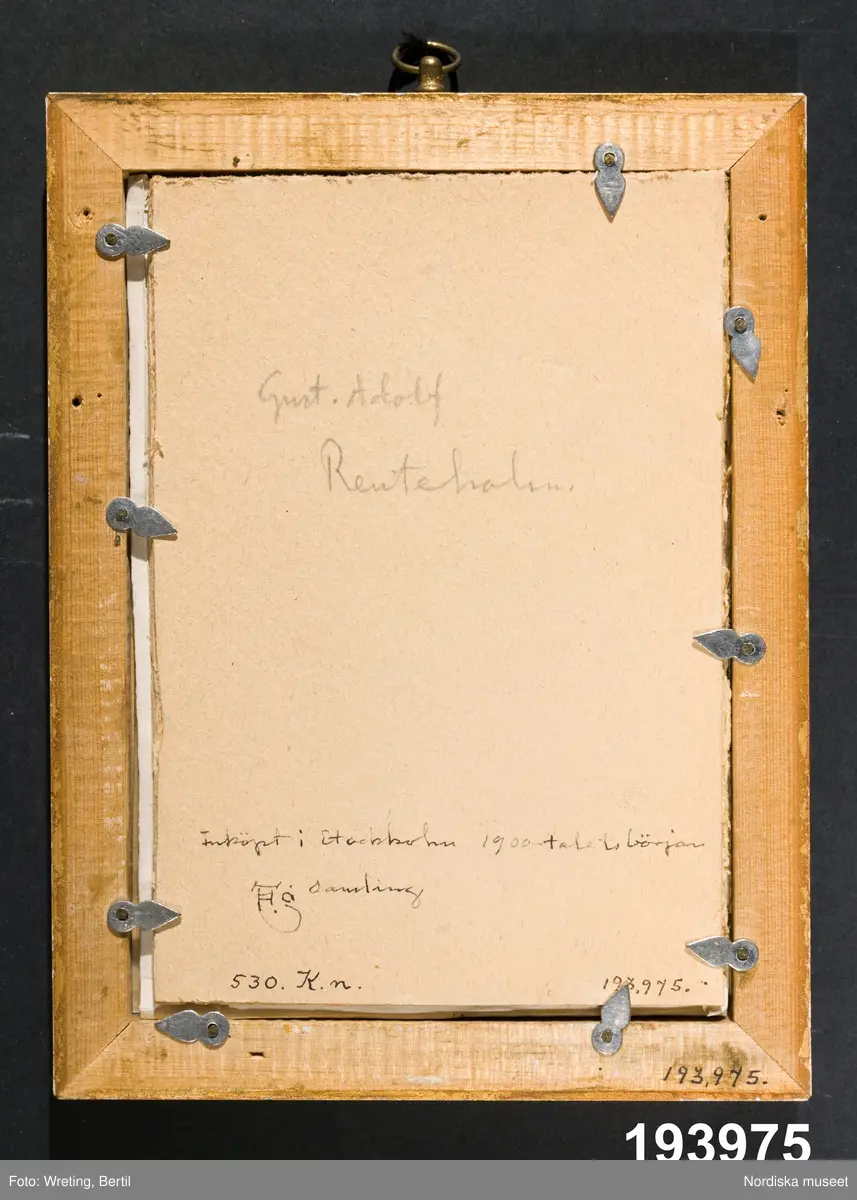 Gust. Adolf
Reuteholm.
Inköpt i Stockholm 1900-talets början
samling
530. K.n.
193,975.
193,975.
193975
Foto: Wreting, Bertil
Nordiska museet